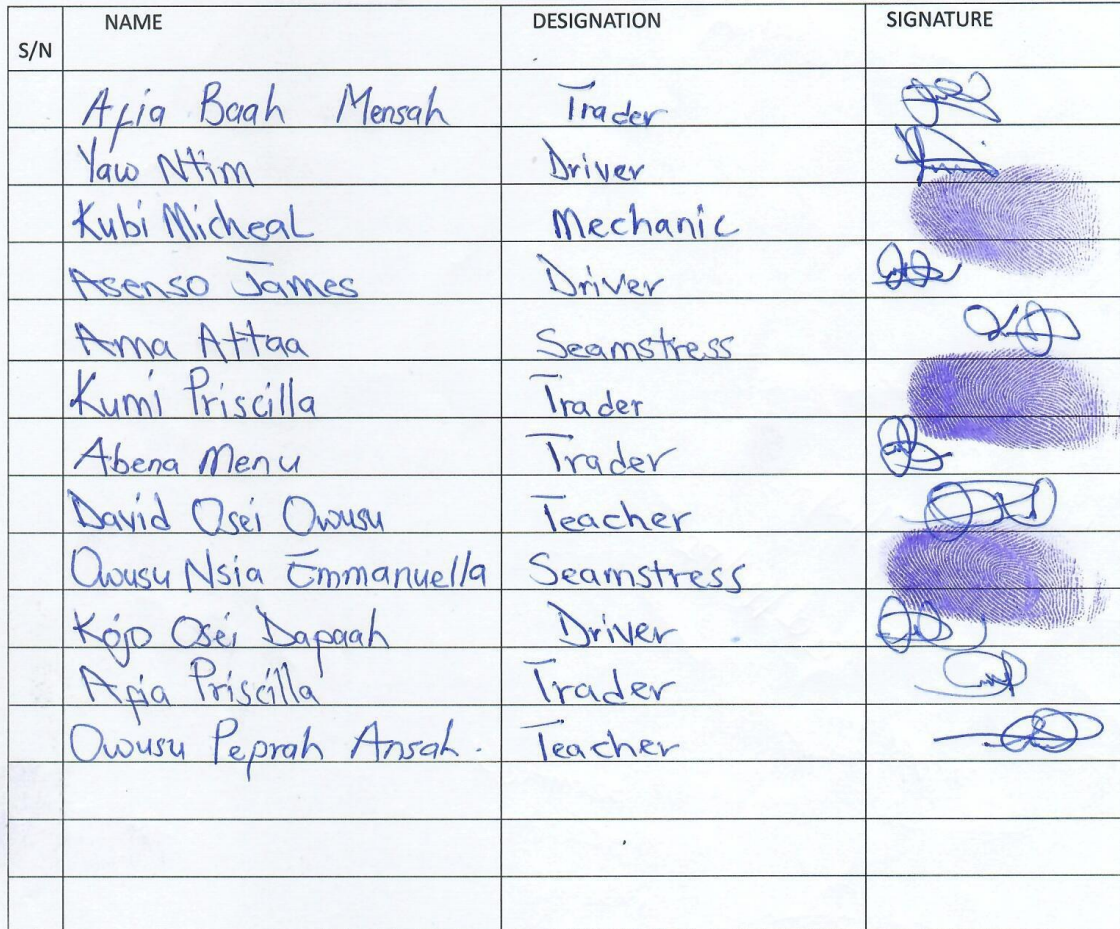 S/N NAME DESIGNATION SIGNATURE
Afia Baah Mensah Trader
Yaw Ntim Driver
Kubi Micheal Mechanic
Asenso James Driver
Ama Attaa Seamstress
Kumi Priscilla Trader
Abena Menu Trader
David Osei Owusu Teacher
Owusu Nsia Emmanuella Seamstress
Kojo Osei Dapaah Driver
Afia Priscilla Trader
Owusu Peprah Ansah. Teacher